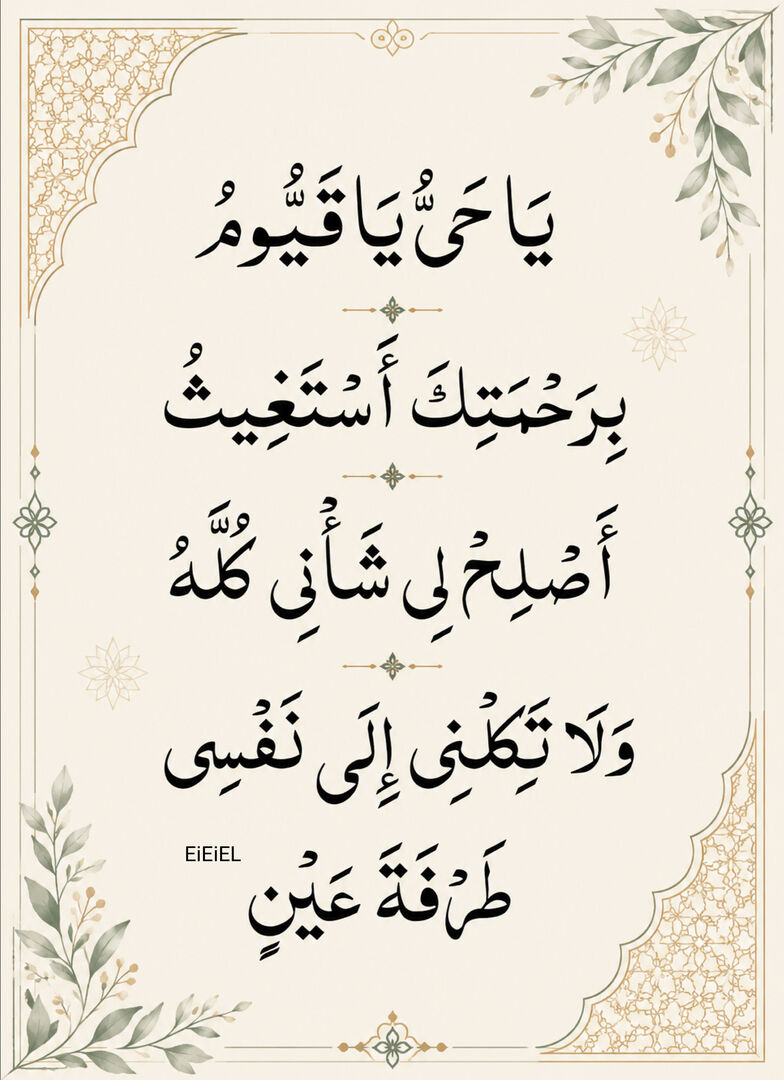 يَا حَىُّ يَا قَيُّومُ
بِرَحْمَتِكَ أَسْتَغِيثُ
أَصْلِحْ لِي شَأْنِي كُلَّهُ
وَلَا تَكِلْنِي إِلَى نَفْسِي
EiEiEL
طَرْفَةَ عَيْنٍ